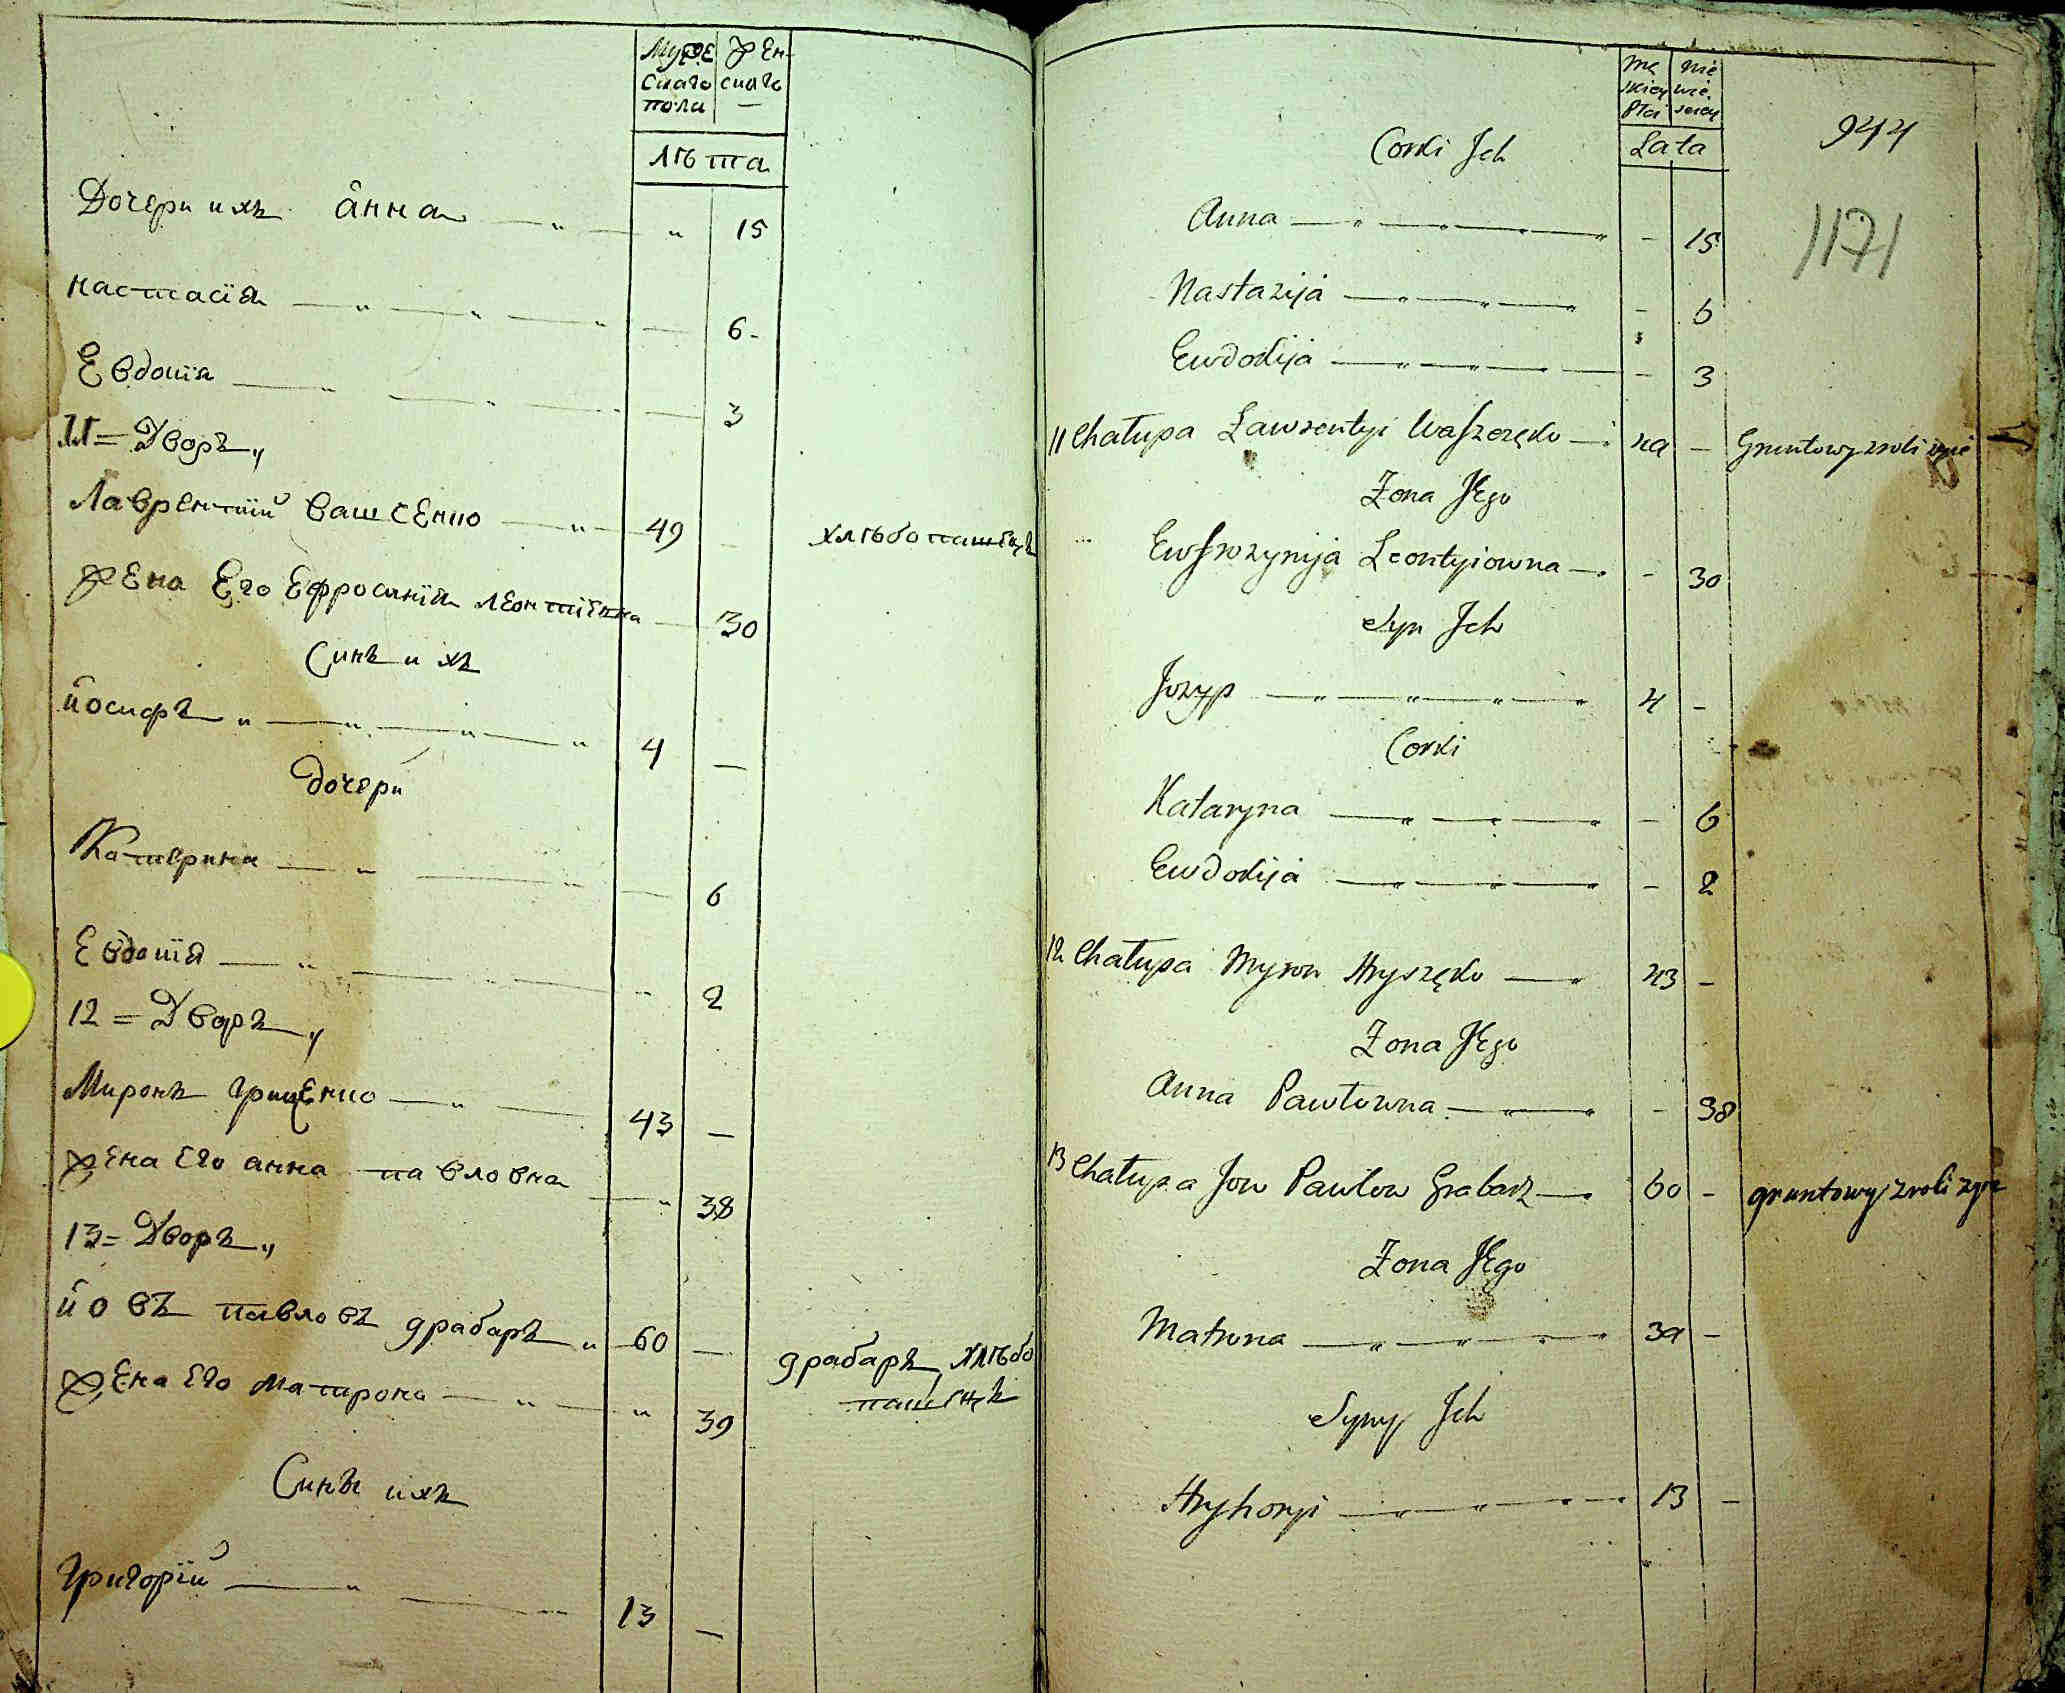 Муже Жен-
скаго скаго
пола —
лѣта
Дочери ихъ анна — „ — „ 15
настасія — „ — „ — „ — 6 -
Евдокія — „ — „ — „ — 3
11 = Дворъ „
Лаврентій Ващенко — „ — 49 - хлѣбопашецъ
Жена Его Ефросинія леонтіевна — 30
Синъ ихъ
йосифъ „ — „ — „ — „ 4 —
дочери
Катерина — „ — „ — 6
Евдокія — „ — „ 2
12 = Дворъ „
Миронъ гриценко — „ — 43 —
Жена Его анна павловна — „ 38
13 = Дворъ „
йовъ павловъ грабаръ „ 60 —
грабаръ, хлѣбо
пашецъ
Жена Его матрона — „ — „ 39
Синъ ихъ
Григорій — „ — „ 13 —
Mę nie
skiey wie
Płci sciey
Lata
944
1171
Corki Jch
Anna — „ — „ — „ — „ - 15
Nastazija — „ — „ — „ - 6
Ewdokija — „ — „ — - 3
11 Chałupa Ławrentyi Waszczęko — 49 - Gruntowy z roli żyie
Zona Jego
Ewfrozynija Leontyiowna — - 30
Syn Jch
Jozyp — „ — „ — „ — „ 4 -
Corki
Kataryna — „ — „ — „ - 6
Ewdokija — „ — „ — „ - 2
12 Chałupa Myron Hryszęko — „ 43 -
Zona Jego
Anna Pawłowna — „ — „ - 38
13 Chałupa Jow Pawłow Grabarz — 60 - gruntowy z roli żyie
Zona Jego
Matrona — „ — „ — „ — „ 39 -
Syny Jch
Hryhoryi — „ — „ — „ — „ 13 -